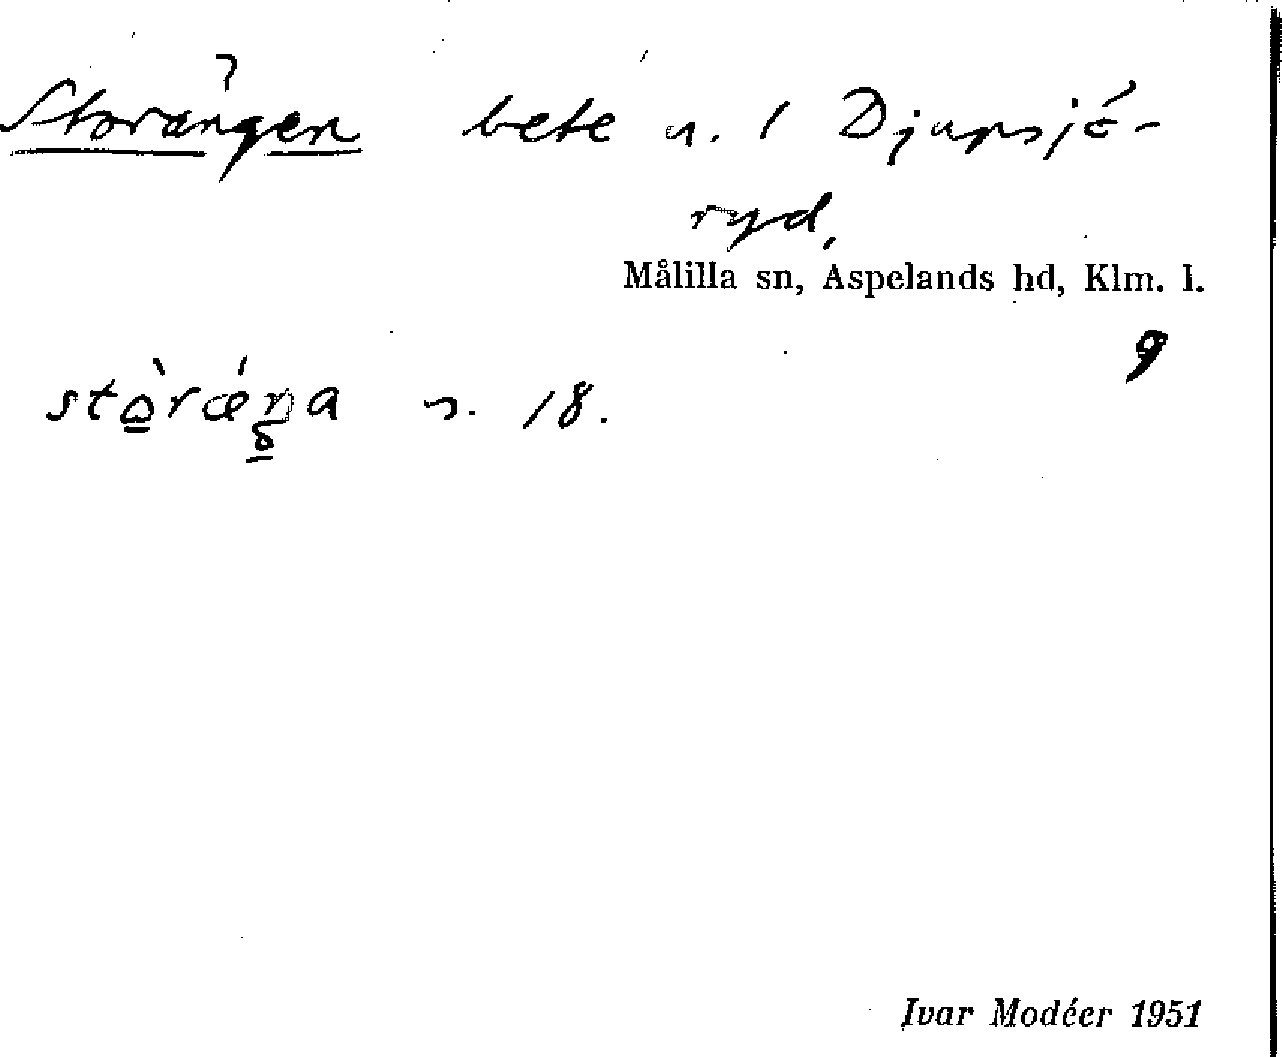 Storängen bete n. 1 Djupsjö-
ryd,
Målilla sn, Aspelands hd, Klm. l.
9
stò̲rǽŋa n. 18.
Ivar Modéer 1951